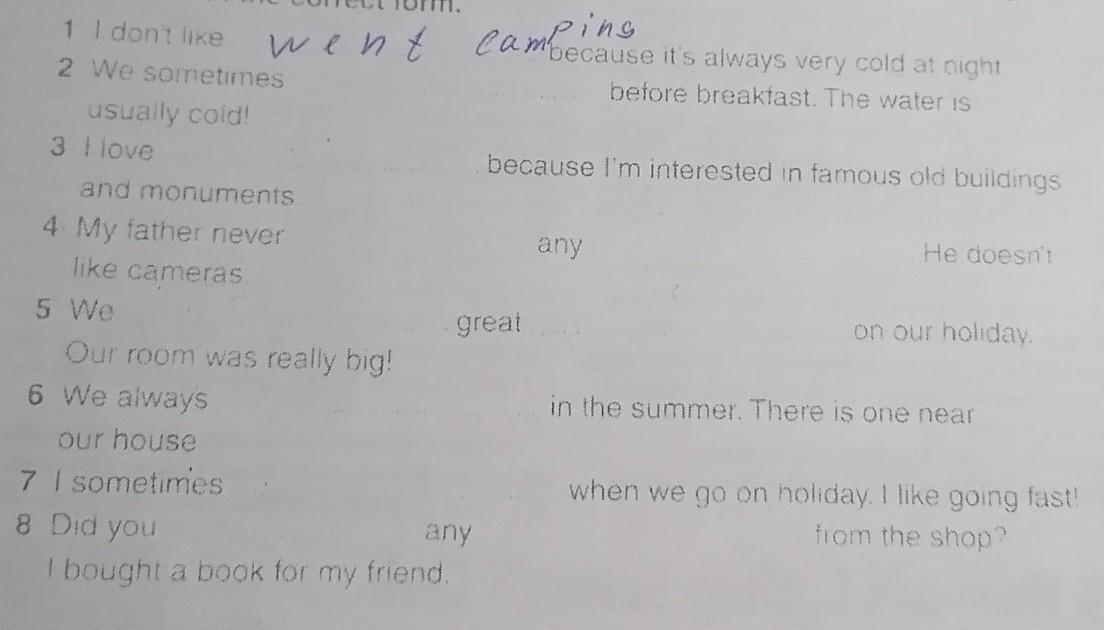 the correct form.
1 I don't like went camping because it's always very cold at night
2 We sometimes before breakfast. The water is
usually cold!
3 I love because I'm interested in famous old buildings
and monuments
4 My father never any He doesn't
like cameras.
5 We great on our holiday.
Our room was really big!
6 We always in the summer. There is one near
our house
7 I sometimes when we go on holiday. I like going fast!
8 Did you any from the shop?
I bought a book for my friend.